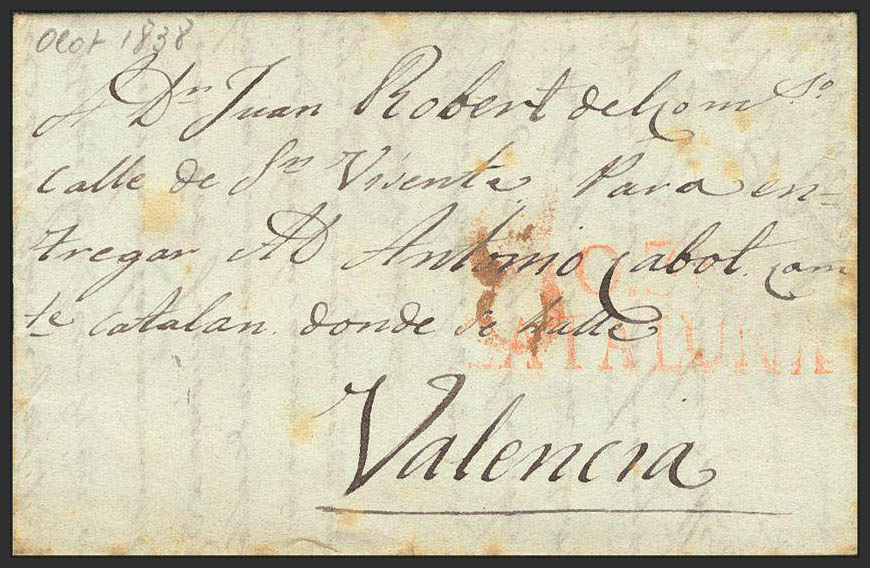 Olot 1838
A Dn Juan Robert del Comso
Calle de Sn Visenta, Para en=
tregar A D Antonio Cabot. Com
te Catalan. donde se halle
CATALUÑA
Valencia